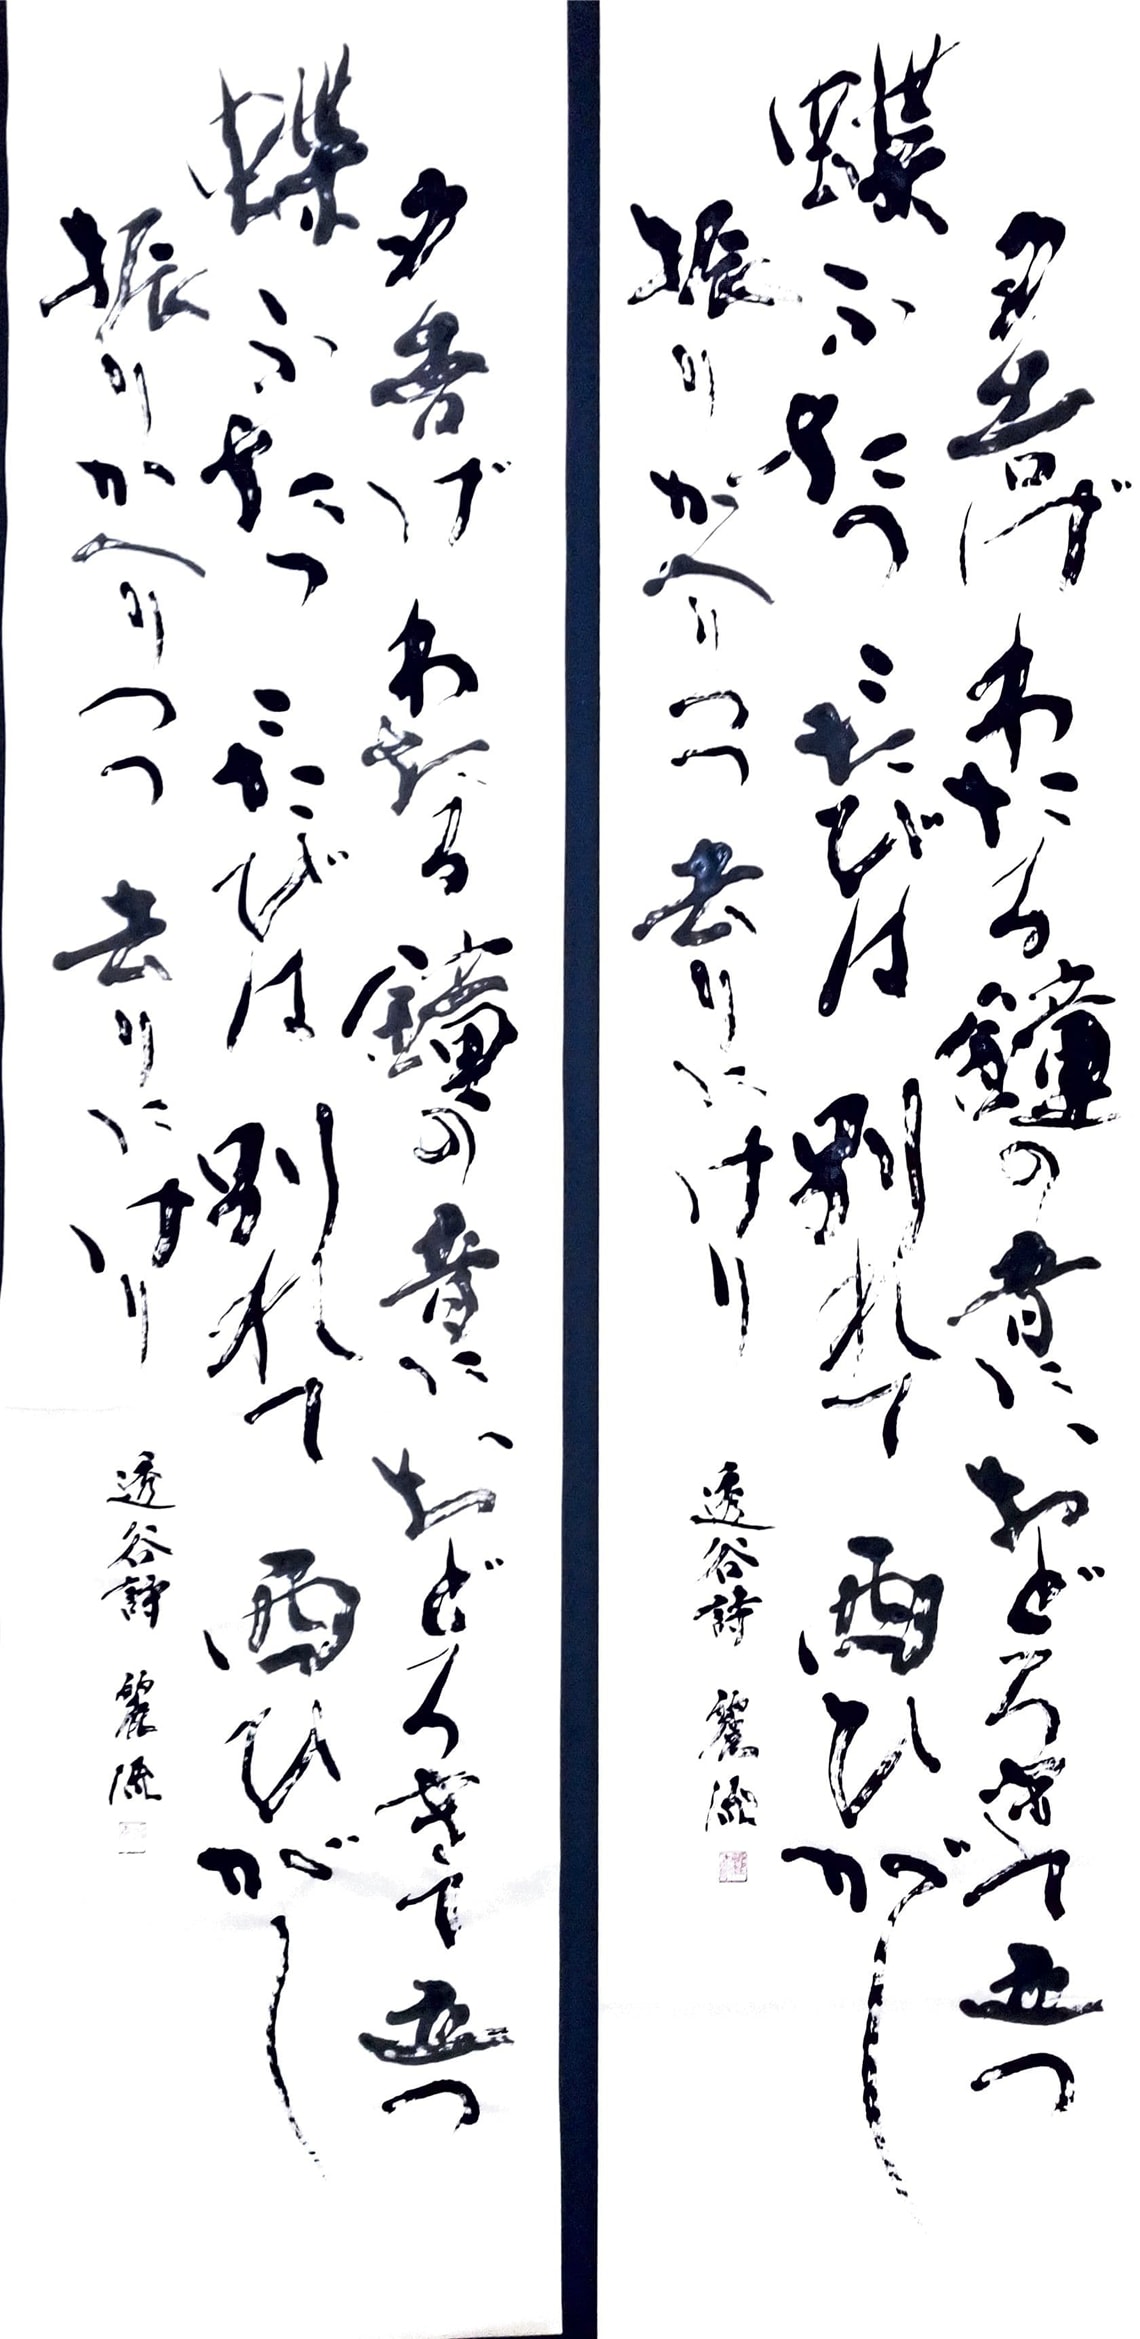 夕告げわたる鐘の音に、おどろきて立つ
蝶ふたつこたびは別れて西ひがし
振りかへりつつ去りにけり
透谷詩 麗流
夕告げわたる鐘の音に、おどろきて立つ
蝶ふたつこたびは別れて西ひがし
振りかへりつつ去りにけり
透谷詩 麗流